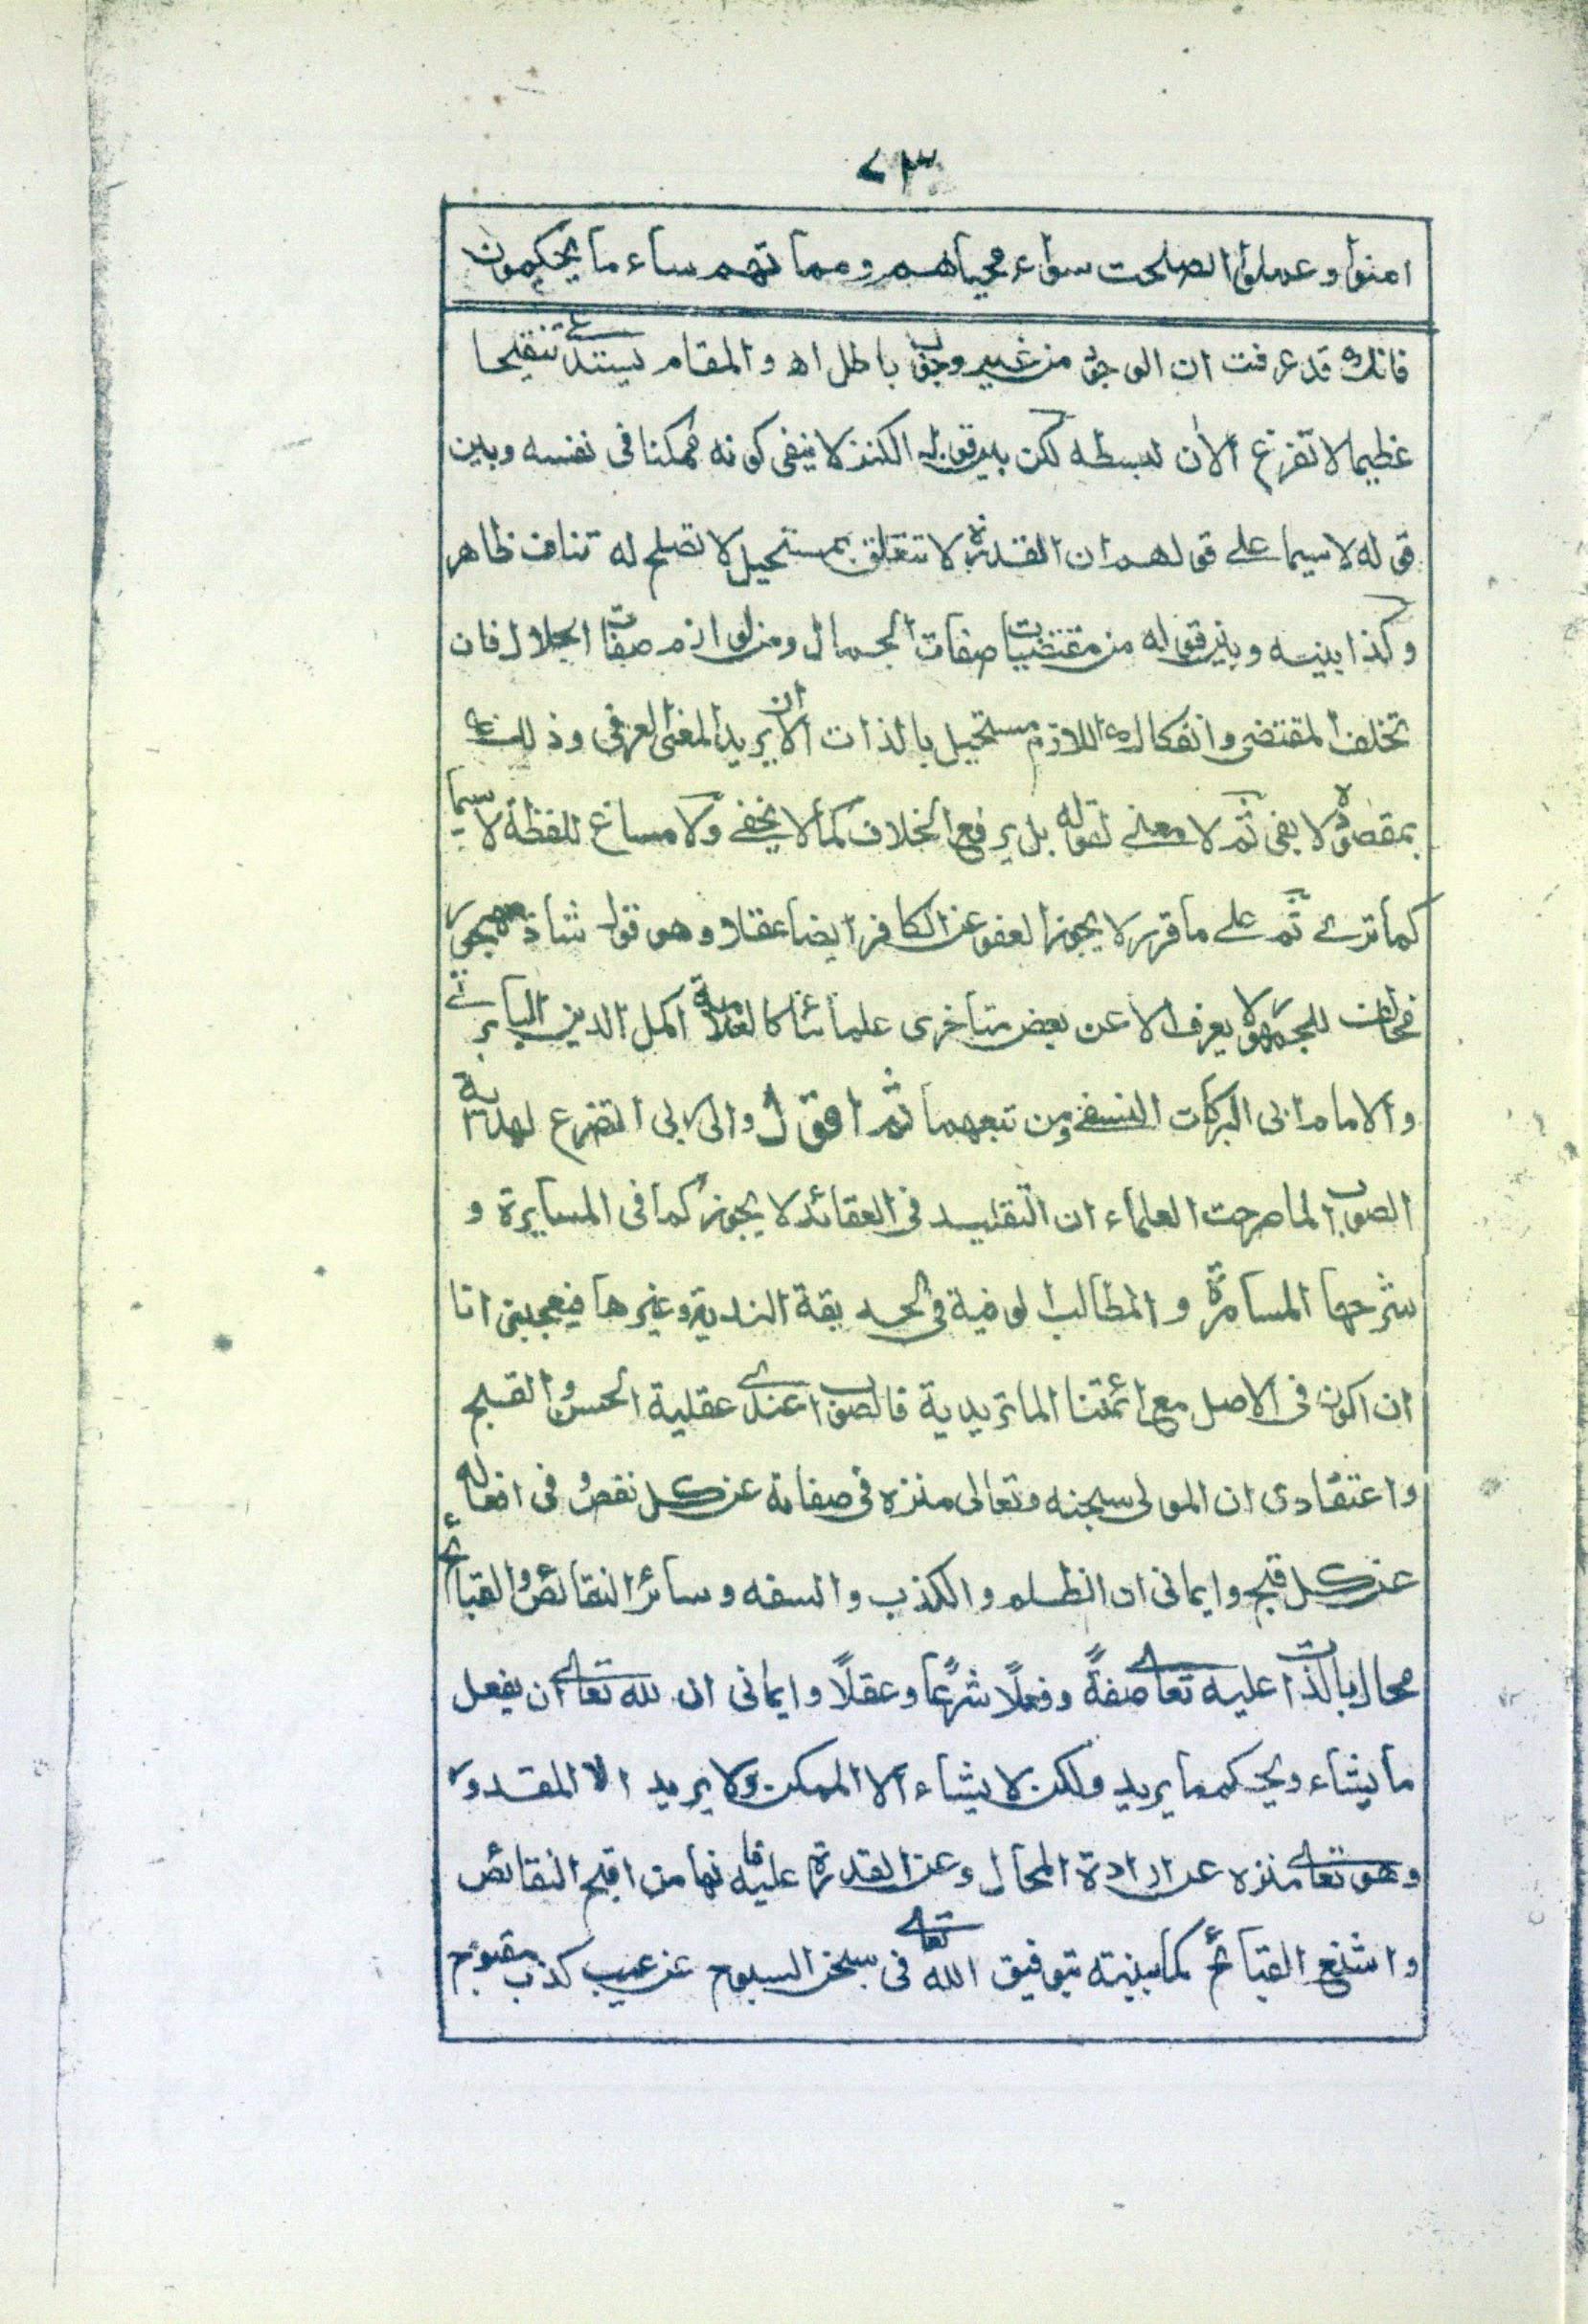 ٧٣
امنوا وعملوا الصلحت سواء محياهم ومماتهم ساء ما يحكمون
فانك قد عرفت ان الوجوب من غير وجوب باطل اه والمقام يستدعي تنقيحا
عظيما لا تفرغ الان لبسطه لكن بين قوليه الكنز لا ينفى كونه ممكنا فى نفسه وبين
قوله لا سيما على قولهم ان القدرة لا تتعلق بمستحيل لا تصلح له تناف ظاهر
وكذا بينه وبين قوله من مقتضيات صفات الجمال ومن لوازم صفات الجلال فان
تخلف المقتضى وانفكاك اللازم مستحيل بالذات الا ان يريد المعنى العرفى وذلك
بمقصوده لا يفى ثم لا معنى لقوله بل يرفع الخلاف كما لا يخفى ولا مساغ للفظة لا سيما
كما ترى ثم على ما قرر لا يجوز العفو عن الكافر ايضا عقلا وهو قول شاذ مهجور
مخالف للجمهور لا يعرف الا عن بعض متاخرى علمائنا كالعلامة اكمل الدين البابرتى
والامام ابى البركات النسفى ومن تبعهما ثم اقول والى ربى التضرع لهداية
الصواب لما صرحت العلماء ان التقليد فى العقائد لا يجوز كما فى المسايرة و
شرحها المسامرة والمطالب الوفية فى الحديقة الندية وغيرها فيعجبنى انا
ان اكون فى الاصل مع ائمتنا الماتريدية فالصواب عندى عقلية الحسن والقبح
واعتقادى ان المولى سبحنه وتعالى منزه فى صفاته عن كل نقص وفى افعاله
عن كل قبح وايمانى ان الظلم والكذب والسفه وسائر النقائص والقبائح
محال بالذات عليه تعالى صفةً وفعلًا شرعًا وعقلًا وايمانى ان لله تعالى ان يفعل
ما يشاء ويحكم ما يريد ولكن لا يشاء الا الممكن ولا يريد الا المقدور
وهو تعالى منزه عن ارادة المحال وعن القدرة عليه فانها من اقبح النقائص
واشنع القبائح كما بينته بتوفيق الله تعالى فى سبحن السبوح عن عيب كذب مقبوح